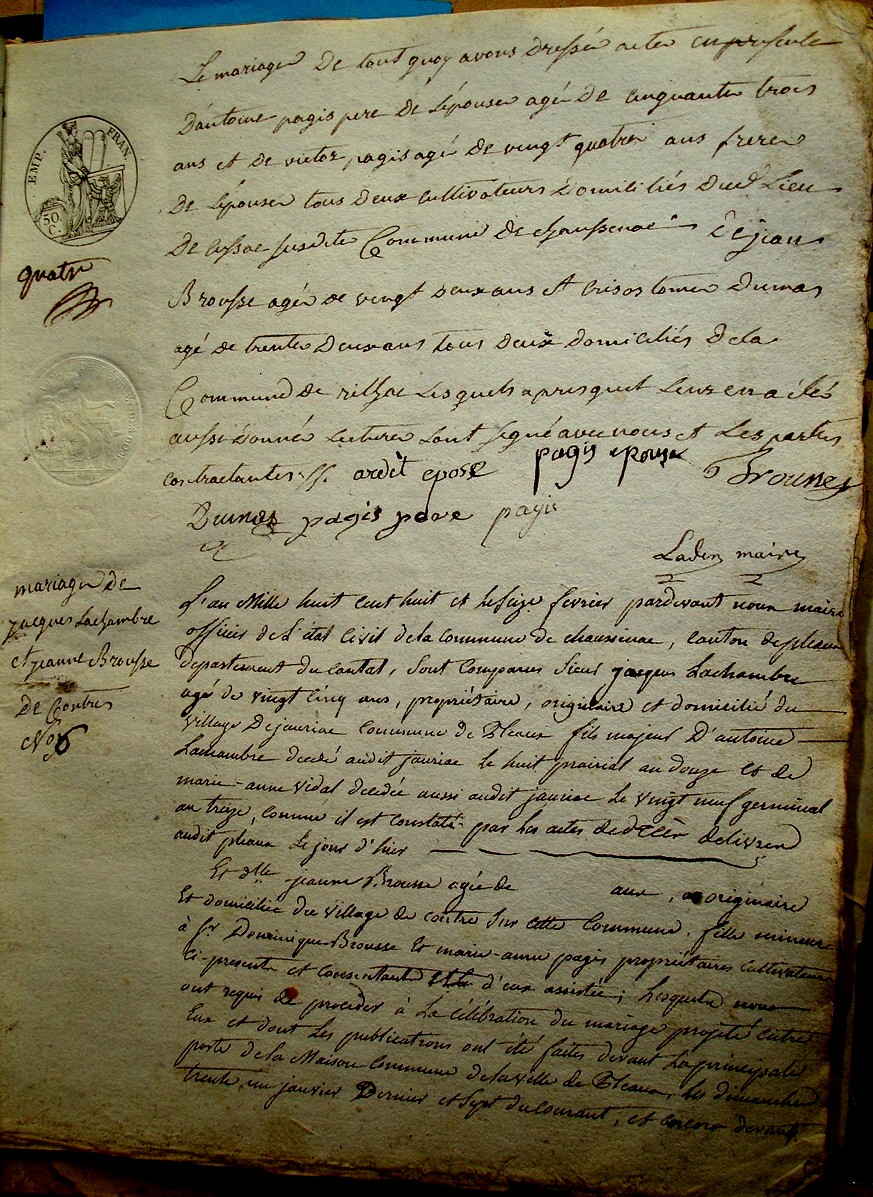 Le mariage De tout quoy avons dressé acte en presence
D'antoine pagis pere De L'épouse agé De cinquante trois
ans et De victor pagis agé De vingt quatre ans frere
De L'épouse tous Deux cultivateurs Domiciliés Dud Lieu
De cussac susdite Commune De chaussenac Dejean
Brousse agé De vingt Deux ans et crisostome Dumas
agé De trente Deux ans tous Deux Domiciliés De la
Commune De rilhac Lesquels apres quil Leur en a été
aussi Donné Lecture ont signé avec nous et Les partis
contractantes
ardit epose pagis epouse Brousse
Dumas pagis pere pagis
Laden maire
EMP. FRAN
50. C.
quatre
mariage De
jacques Lachambre
et jeanne Brousse
De Contres
No 6
L'an Mille huit cent huit et le seize fevrier pardevant nous maire
officier de L'état Civil de la commune de chaussenac, canton de pleaux
departement du cantal, sont comparus sieur jacques Lachambre
agé de vingt cinq ans, propriétaire, originaire et domicilié du
village De jauriac commune de Pleaux fils majeur D'antoine
Lachambre decedé audit jauriac le huit prairial an douze et de
marie-anne vidal decedée aussi audit jauriac Le vingt neuf germinal
an treize, comme il est constaté par les actes de décès delivrés
audit pleaux Le jour d'hier
Et dlle jeanne Brousse agée de ans, originaire
Et domiciliée du village de contre sur cette Commune, fille mineure
à sr Dominique Brousse Et marie-anne pagis propriétaires cultivateurs
ci-presents et consentants d'eux assistée; Lesquels nous
ont requis de proceder à La célébration du mariage projeté entre
Eux et dont Les publications ont été faites devant La principale
porte de la Maison commune de la ville de Pleaux, les dimanches
trente un janvier Dernier et sept du courant, et encore devant